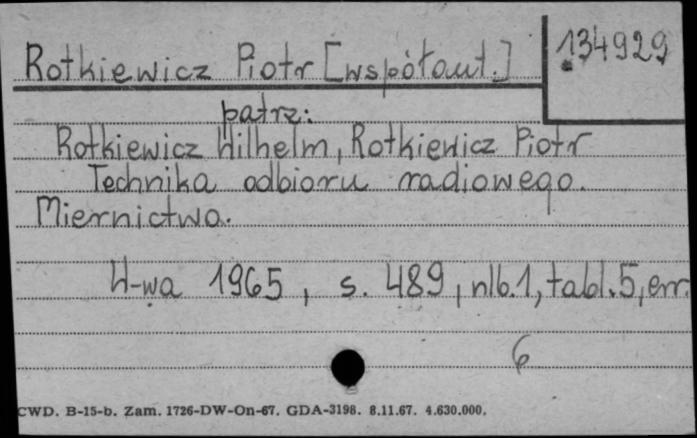 Rotkiewicz Piotr [współaut.]
134929
patrz:
Rotkiewicz Wilhelm, Rotkiewicz Piotr
Technika odbioru radiowego.
Miernictwo.
W-wa 1965, s. 489, nlb.1, tabl.5, err.
6
CWD. B-15-b. Zam. 1726-DW-On-67. GDA-3198. 8.11.67. 4.630.000.